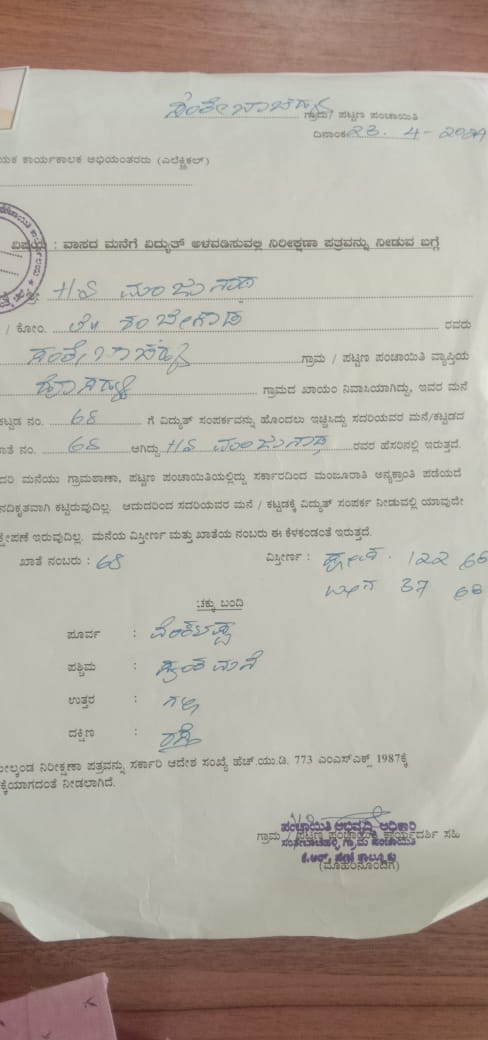 ಸಂತೇಬಾಚಹಳ್ಳಿ ಗ್ರಾಮ/ ಪಟ್ಟಣ ಪಂಚಾಯಿತಿ
ದಿನಾಂಕ: 23. 4-
ಯಕ ಕಾರ್ಯಕಾಲಕ ಅಭಿಯಂತರರು (ಎಲೆಕ್ಟ್ರಿಕಲ್)
ವಿಷಯ : ವಾಸದ ಮನೆಗೆ ವಿದ್ಯುತ್ ಅಳವಡಿಸುವಲ್ಲಿ ನಿರೀಕ್ಷಣಾ ಪತ್ರವನ್ನು ನೀಡುವ ಬಗ್ಗೆ
ಶ್ರೀ HS ಮಂಜುನಾಥ
/ ಕೋಂ. ರವರು
ಸಂತೇಬಾಚಹಳ್ಳಿ ಗ್ರಾಮ / ಪಟ್ಟಣ ಪಂಚಾಯಿತಿ ವ್ಯಾಪ್ತಿಯ
ಗ್ರಾಮದ ಖಾಯಂ ನಿವಾಸಿಯಾಗಿದ್ದು, ಇವರ ಮನೆ
ಕಟ್ಟಡ ನಂ. 68 ಗೆ ವಿದ್ಯುತ್ ಸಂಪರ್ಕವನ್ನು ಹೊಂದಲು ಇಚ್ಚಿಸಿದ್ದು ಸದರಿಯವರ ಮನೆ/ಕಟ್ಟಡದ
ಖಾತೆ ನಂ. 68 ಆಗಿದ್ದು HS ಮಂಜುನಾಥ ರವರ ಹೆಸರಿನಲ್ಲಿ ಇರುತ್ತದೆ.
ದರಿ ಮನೆಯು ಗ್ರಾಮಠಾಣಾ, ಪಟ್ಟಣ ಪಂಚಾಯಿತಿಯಲ್ಲಿದ್ದು ಸರ್ಕಾರದಿಂದ ಮಂಜೂರಾತಿ ಅನ್ಯಕ್ರಾಂತಿ ಪಡೆಯದೆ
ನಧಿಕೃತವಾಗಿ ಕಟ್ಟಿರುವುದಿಲ್ಲ. ಆದುದರಿಂದ ಸದರಿಯವರ ಮನೆ / ಕಟ್ಟಡಕ್ಕೆ ವಿದ್ಯುತ್ ಸಂಪರ್ಕ ನೀಡುವಲ್ಲಿ ಯಾವುದೇ
ಕ್ಷೇಪಣೆ ಇರುವುದಿಲ್ಲ. ಮನೆಯ ವಿಸ್ತೀರ್ಣ ಮತ್ತು ಖಾತೆಯ ನಂಬರು ಈ ಕೆಳಕಂಡಂತೆ ಇರುತ್ತದೆ.
ಖಾತೆ ನಂಬರು : 68 ವಿಸ್ತೀರ್ಣ : 122 66
37 68
ಚಕ್ಕು ಬಂದಿ
ಪೂರ್ವ :
ಪಶ್ಚಿಮ : ಸ್ವಂತ ಮನೆ
ಉತ್ತರ : ಗಲ್ಲಿ
ದಕ್ಷಿಣ : ರಸ್ತೆ
ಮೇಲ್ಕಂಡ ನಿರೀಕ್ಷಣಾ ಪತ್ರವನ್ನು ಸರ್ಕಾರಿ ಆದೇಶ ಸಂಖ್ಯೆ ಹೆಚ್.ಯು.ಡಿ. 773 ಎಂಎಸ್‌ಎಕ್ಸ್ 1987ಕ್ಕೆ
ಕ್ಕೆಯಾಗದಂತೆ ನೀಡಲಾಗಿದೆ.
ಪಂಚಾಯಿತಿ ಅಭಿವೃದ್ಧಿ ಅಧಿಕಾರಿ
ಗ್ರಾಮ / ಪಟ್ಟಣ ಪಂಚಾಯಿತಿ ಕಾರ್ಯದರ್ಶಿ ಸಹಿ
ಸಂತೇಬಾಚಹಳ್ಳಿ ಗ್ರಾಮ ಪಂಚಾಯಿತಿ
ಕೆ.ಆರ್. ಪೇಟೆ ತಾಲ್ಲೂಕು
(ಮೊಹರಿನೊಂದಿಗೆ)